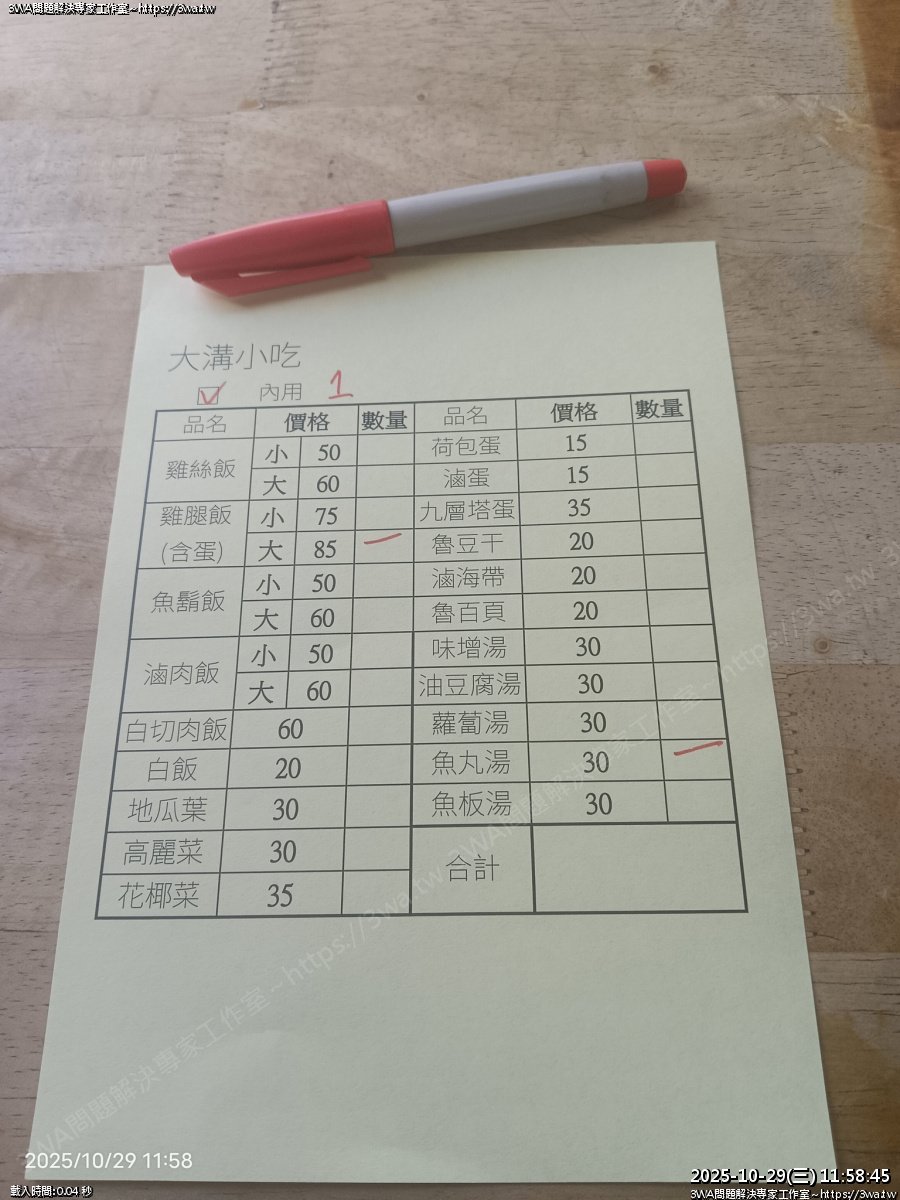 3WA問題解決專家工作室~https://3wa.tw
大溝小吃
☑ 內用 1
品名 價格 數量 品名 價格 數量
雞絲飯 小 50 荷包蛋 15
大 60 滷蛋 15
雞腿飯 小 75 九層塔蛋 35
(含蛋) 大 85 一 魯豆干 20
魚鬍飯 小 50 滷海帶 20
大 60 魯百頁 20
滷肉飯 小 50 味增湯 30
大 60 油豆腐湯 30
白切肉飯 60 蘿蔔湯 30
白飯 20 魚丸湯 30 一
地瓜葉 30 魚板湯 30
高麗菜 30 合計
花椰菜 35
3WA問題解決專家工作室~https://3wa.tw~3WA問題解決專家工作室~https://3wa.tw
2025/10/29 11:58
載入時間:0.04 秒
2025-10-29(三) 11:58:45
3WA問題解決專家工作室~https://3wa.tw